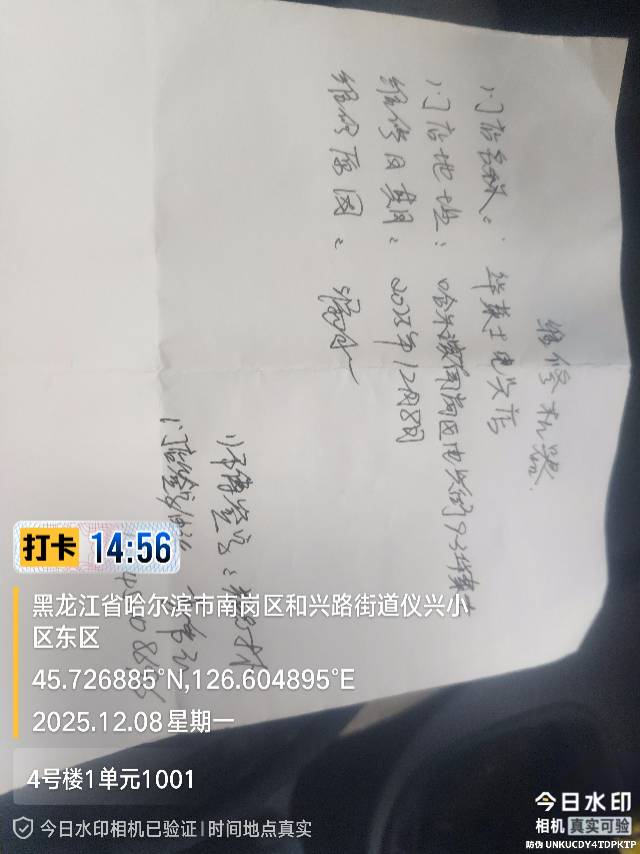 维修机器
门店名称：华莱士电兴店
门店地址：哈尔滨南岗区电兴街9-3华莱士
维修日期：2025年12月8日
维修原因：
师傅签字：
门店签字
打卡 14:56
黑龙江省哈尔滨市南岗区和兴路街道仪兴小
区东区
45.726885°N,126.604895°E
2025.12.08 星期一
4号楼1单元1001
今日水印相机已验证 | 时间地点真实
今日水印
相机 真实可验
防伪 UNKUCDY4TDPKTP